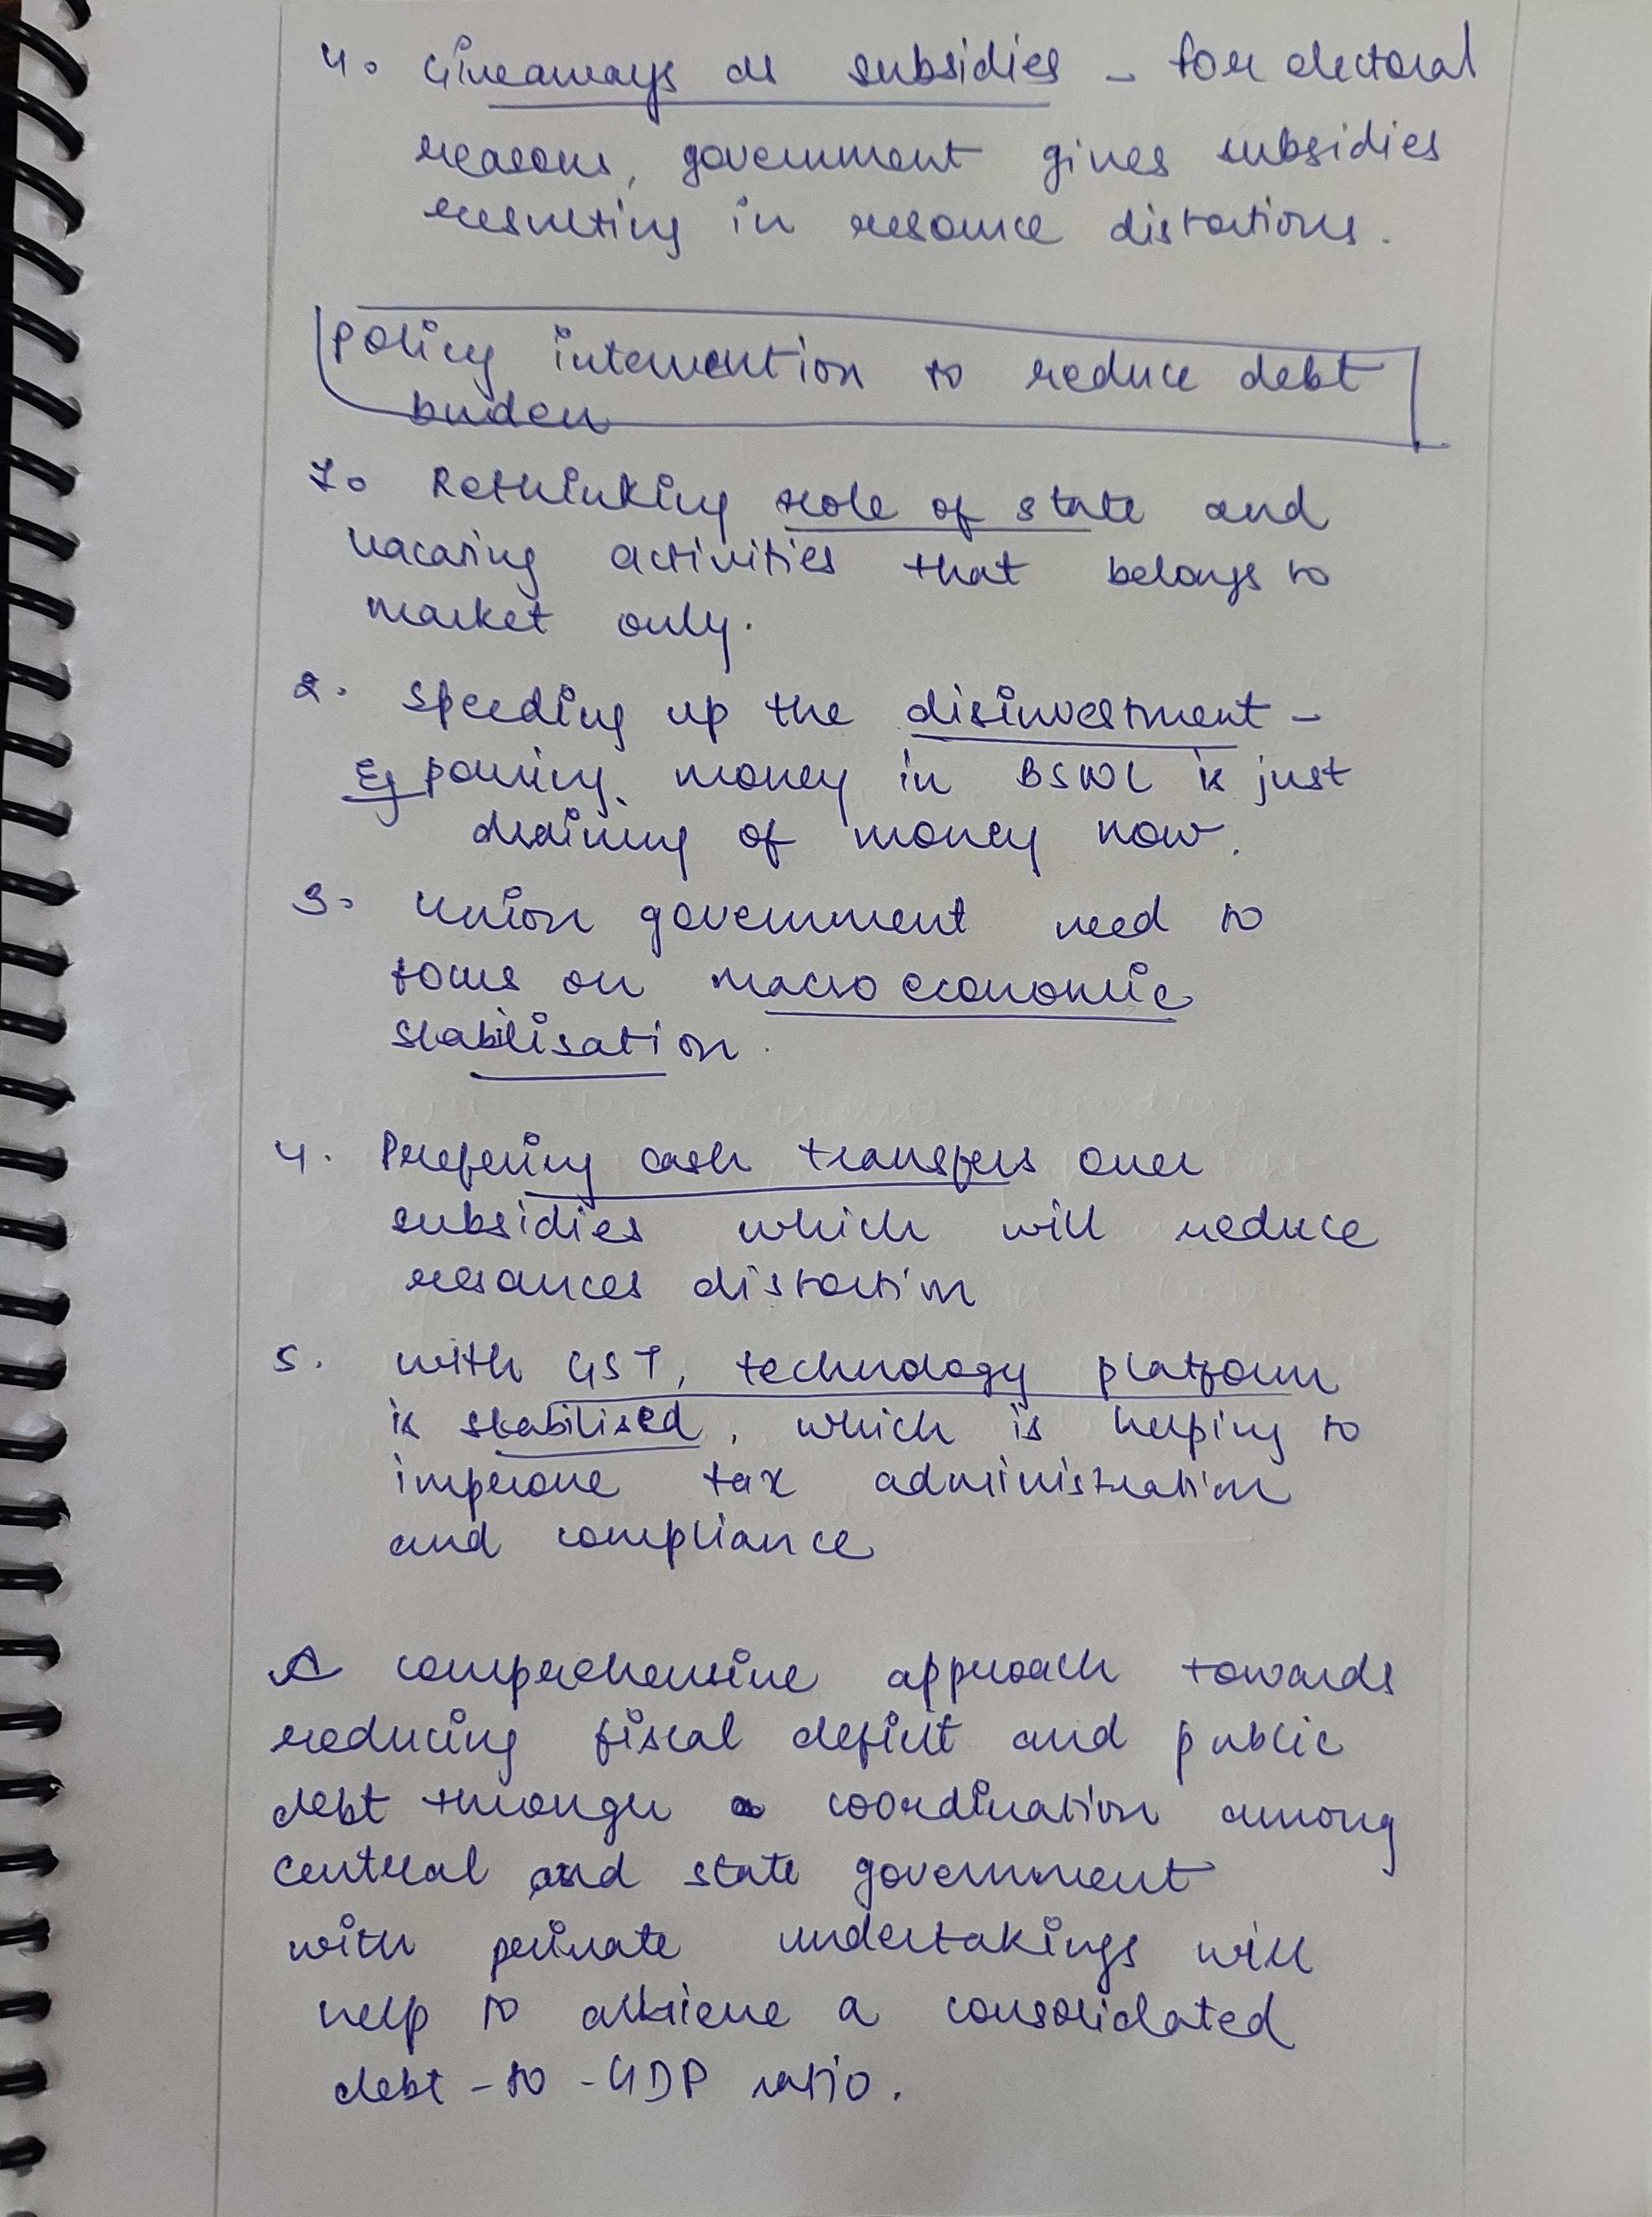 4. Giveaways as subsidies - for electoral
reasons, government gives subsidies
resulting in resource distortions.
Policy intervention to reduce debt
burden
1. Rethinking role of state and
vacating activities that belongs to
market only.
2. Speeding up the disinvestment -
Eg pouring money in BSNL is just
draining of money now.
3. Union government need to
focus on macro economic
stabilisation.
4. Prefering cash transfers over
subsidies which will reduce
resources distortion
5. with GST, technology platform
is stabilised, which is helping to
improve tax administration
and compliance
A comprehensive approach towards
reducing fiscal deficit and public
debt through a coordination among
central and state government
with private undertakings will
help to achieve a consolidated
debt-to-GDP ratio.